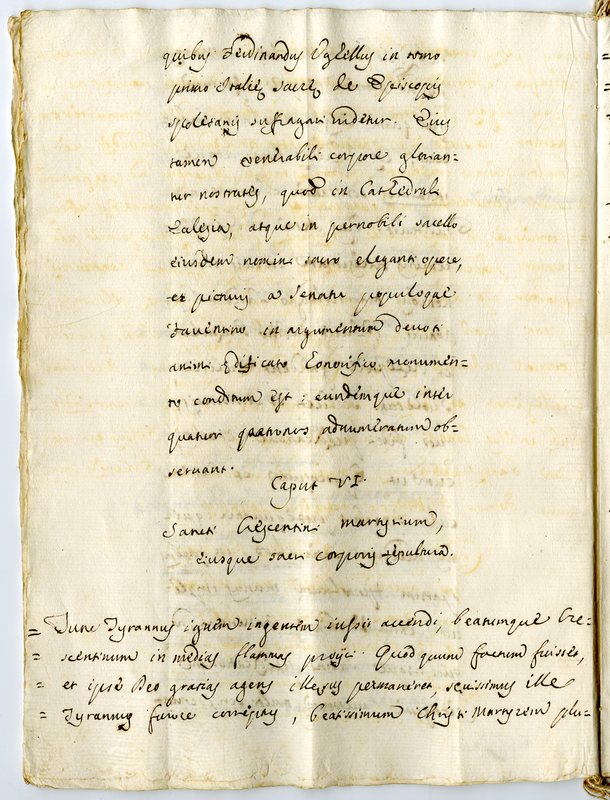 quibus Ferdinandus Vghellus in tomo
primo Italię sacrę de Episcopis
spoletanis suffragari uidetur. Eius
tamen venerabili corpore glorian=
tur nostrates, quod in Cathedrali
Eclesia, atque in pernobili sacello
eiusdem nomini sacro eleganti opere,
et picturis a Senatu populoque
Fauentino in argumentum deuoti
animi ędificato honorifico monumen=
to conditum est: eundemque inter
quatuor patronos adnumeratum ob=
seruant.
Caput VI.
Sancti Crescentini martyrium,
eiusque sacri corporis sepultura.
= Tunc Tyrannus ignem ingentem iussit accendi, beatumque Cre=
= scentinum in medias flammas proijci. Quod quum factum fuisset,
= et ipse Deo gratias agens illęsus permaneret, sęuissimus ille
= Tyrannus furore correptus, beatissimum Christi Martyrem plu=